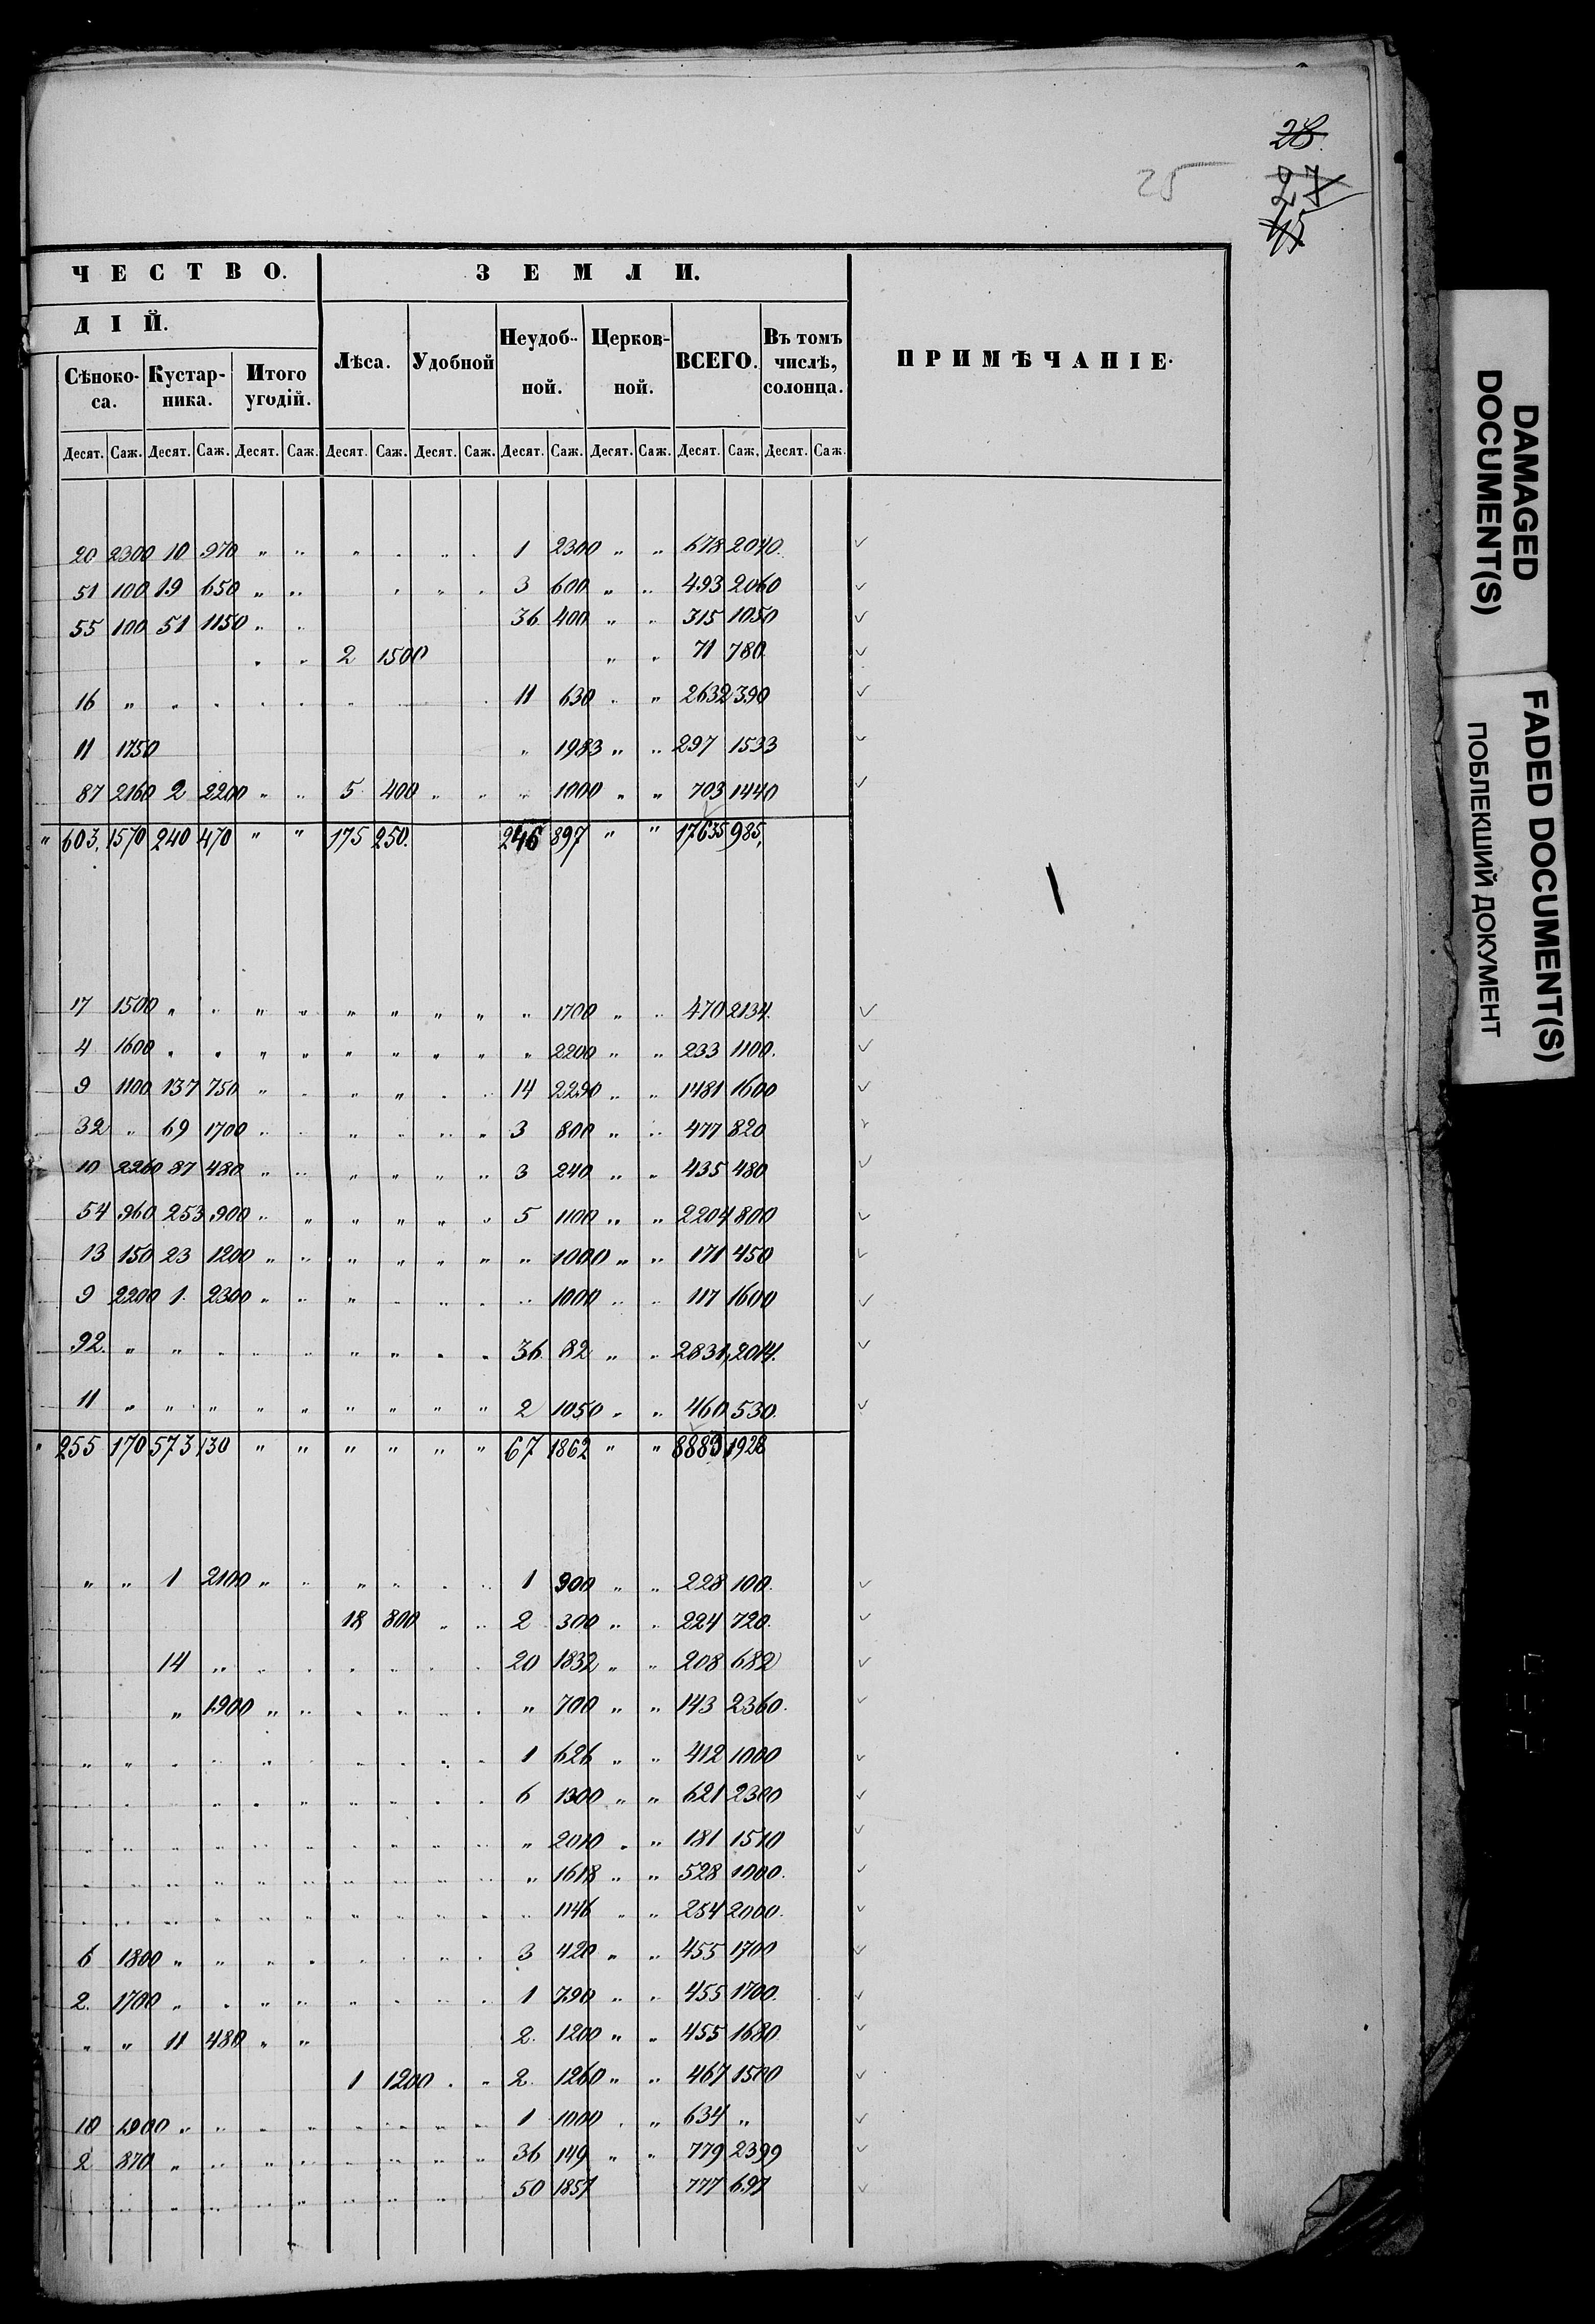 28.
25 27
45
ЧЕСТВО. ЗЕМЛИ.
ДІЙ.
Сѣноко-са. Кустар-ника. Итого угодій. Лѣса. Удобной Неудоб-ной. Церков-ной. ВСЕГО. Въ томъ числѣ, солонца. ПРИМѢЧАНІЕ.
Десят. Саж. Десят. Саж. Десят. Саж. Десят. Саж. Десят. Саж. Десят. Саж. Десят. Саж. Десят. Саж. Десят. Саж.
20 2300 10 970 „ „ „ „ „ „ 1 2300 „ „ 678 2040
51 100 19 650 „ „ „ „ „ 3 600 „ „ 493 2060
55 100 51 1150 „ „ 36 400 „ „ 315 1050
„ „ 2 1500 „ „ 71 780
16 „ „ „ „ „ „ „ 11 630 „ „ 2632 390
11 1750 „ 1983 „ „ 297 1533
87 2160 2 2200 „ „ 5 400 „ „ „ 1000 „ „ 703 1440
„ 603 1570 240 470 „ „ 175 250. 246 897 „ „ 17635 985,
17 1500 „ „ „ „ „ „ „ „ „ 1700 „ „ 470 2134.
4 1600 „ „ „ „ „ „ „ „ „ 2200 „ „ 233 1100.
9 1100 137 750 „ „ „ „ „ „ 14 2290 „ „ 1481 1600
32 „ 69 1700 „ „ „ „ „ „ 3 800 „ „ 477 820
10 2260 87 480 „ „ „ „ „ „ 3 240 „ „ 435 480
54 960 253 900 „ „ „ „ „ „ 5 1100 „ „ 2204 800
13 150 23 1200 „ „ „ „ „ „ „ 1000 „ „ 171 450
9 2200 1 2300 „ „ „ „ „ „ „ 1000 „ „ 117 1600
92. „ „ „ „ „ „ „ „ „ 36 82 „ „ 2831 2014.
11 „ „ „ „ „ „ „ „ „ 2 1050 „ „ 460 530.
„ 255 170 573 130 „ „ „ „ „ „ 67 1862 „ „ 8883 1928
„ „ 1 2100 „ „ „ „ „ „ 1 900 „ „ 228 100.
18 800 „ „ 2 300 „ „ 224 720.
14 „ „ „ „ „ „ „ 20 1832 „ „ 208 682
„ 1900 „ „ „ „ „ „ „ 700 „ „ 143 2360.
„ „ „ „ „ „ „ „ „ „ 1 626 „ „ 412 1000
„ „ „ „ „ „ „ „ „ „ 6 1300 „ „ 621 2300
„ „ „ „ „ „ „ „ „ „ „ 2010 „ „ 181 1510
„ „ „ „ „ „ „ „ „ „ „ 1618 „ „ 528 1000.
„ „ „ „ „ „ „ „ „ „ „ 1146 „ „ 254 2000.
6 1800 „ „ „ „ „ „ „ „ 3 420 „ „ 455 1700
2. 1700 „ „ „ „ „ „ „ „ 1 790 „ „ 455 1700.
„ „ 11 480 „ „ 2. 1200 „ „ 455 1680
1 1200 „ „ 2 1260 „ „ 467 1500
10 1900 „ „ „ „ „ „ „ „ 1 1000 „ „ 634 „
2 870 „ „ „ „ „ „ „ „ 36 149 „ „ 779 2399
„ „ „ „ „ „ „ „ „ 50 1857 777 697
DAMAGED DOCUMENT(S)
FADED DOCUMENT(S)
ПОБЛЕКШИЙ ДОКУМЕНТ